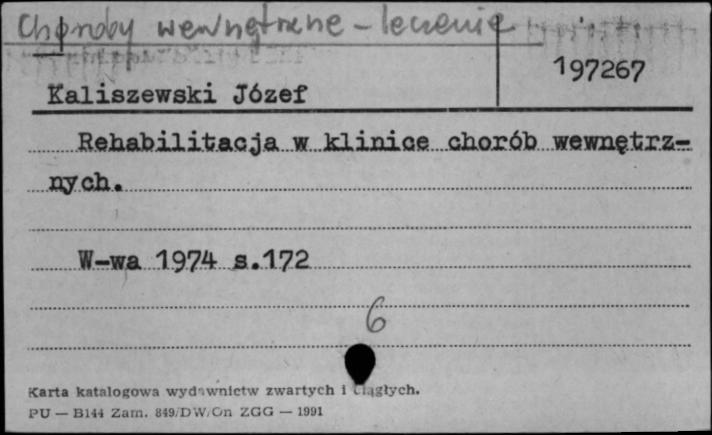 Choroby wewnętrzne - leczenie
197267
Kaliszewski Józef
Rehabilitacja w klinice chorób wewnętrz-
nych.
W-wa 1974 s.172
6
Karta katalogowa wydawnictw zwartych i ciągłych.
PU — B144 Zam. 849/DW/On ZGG — 1991